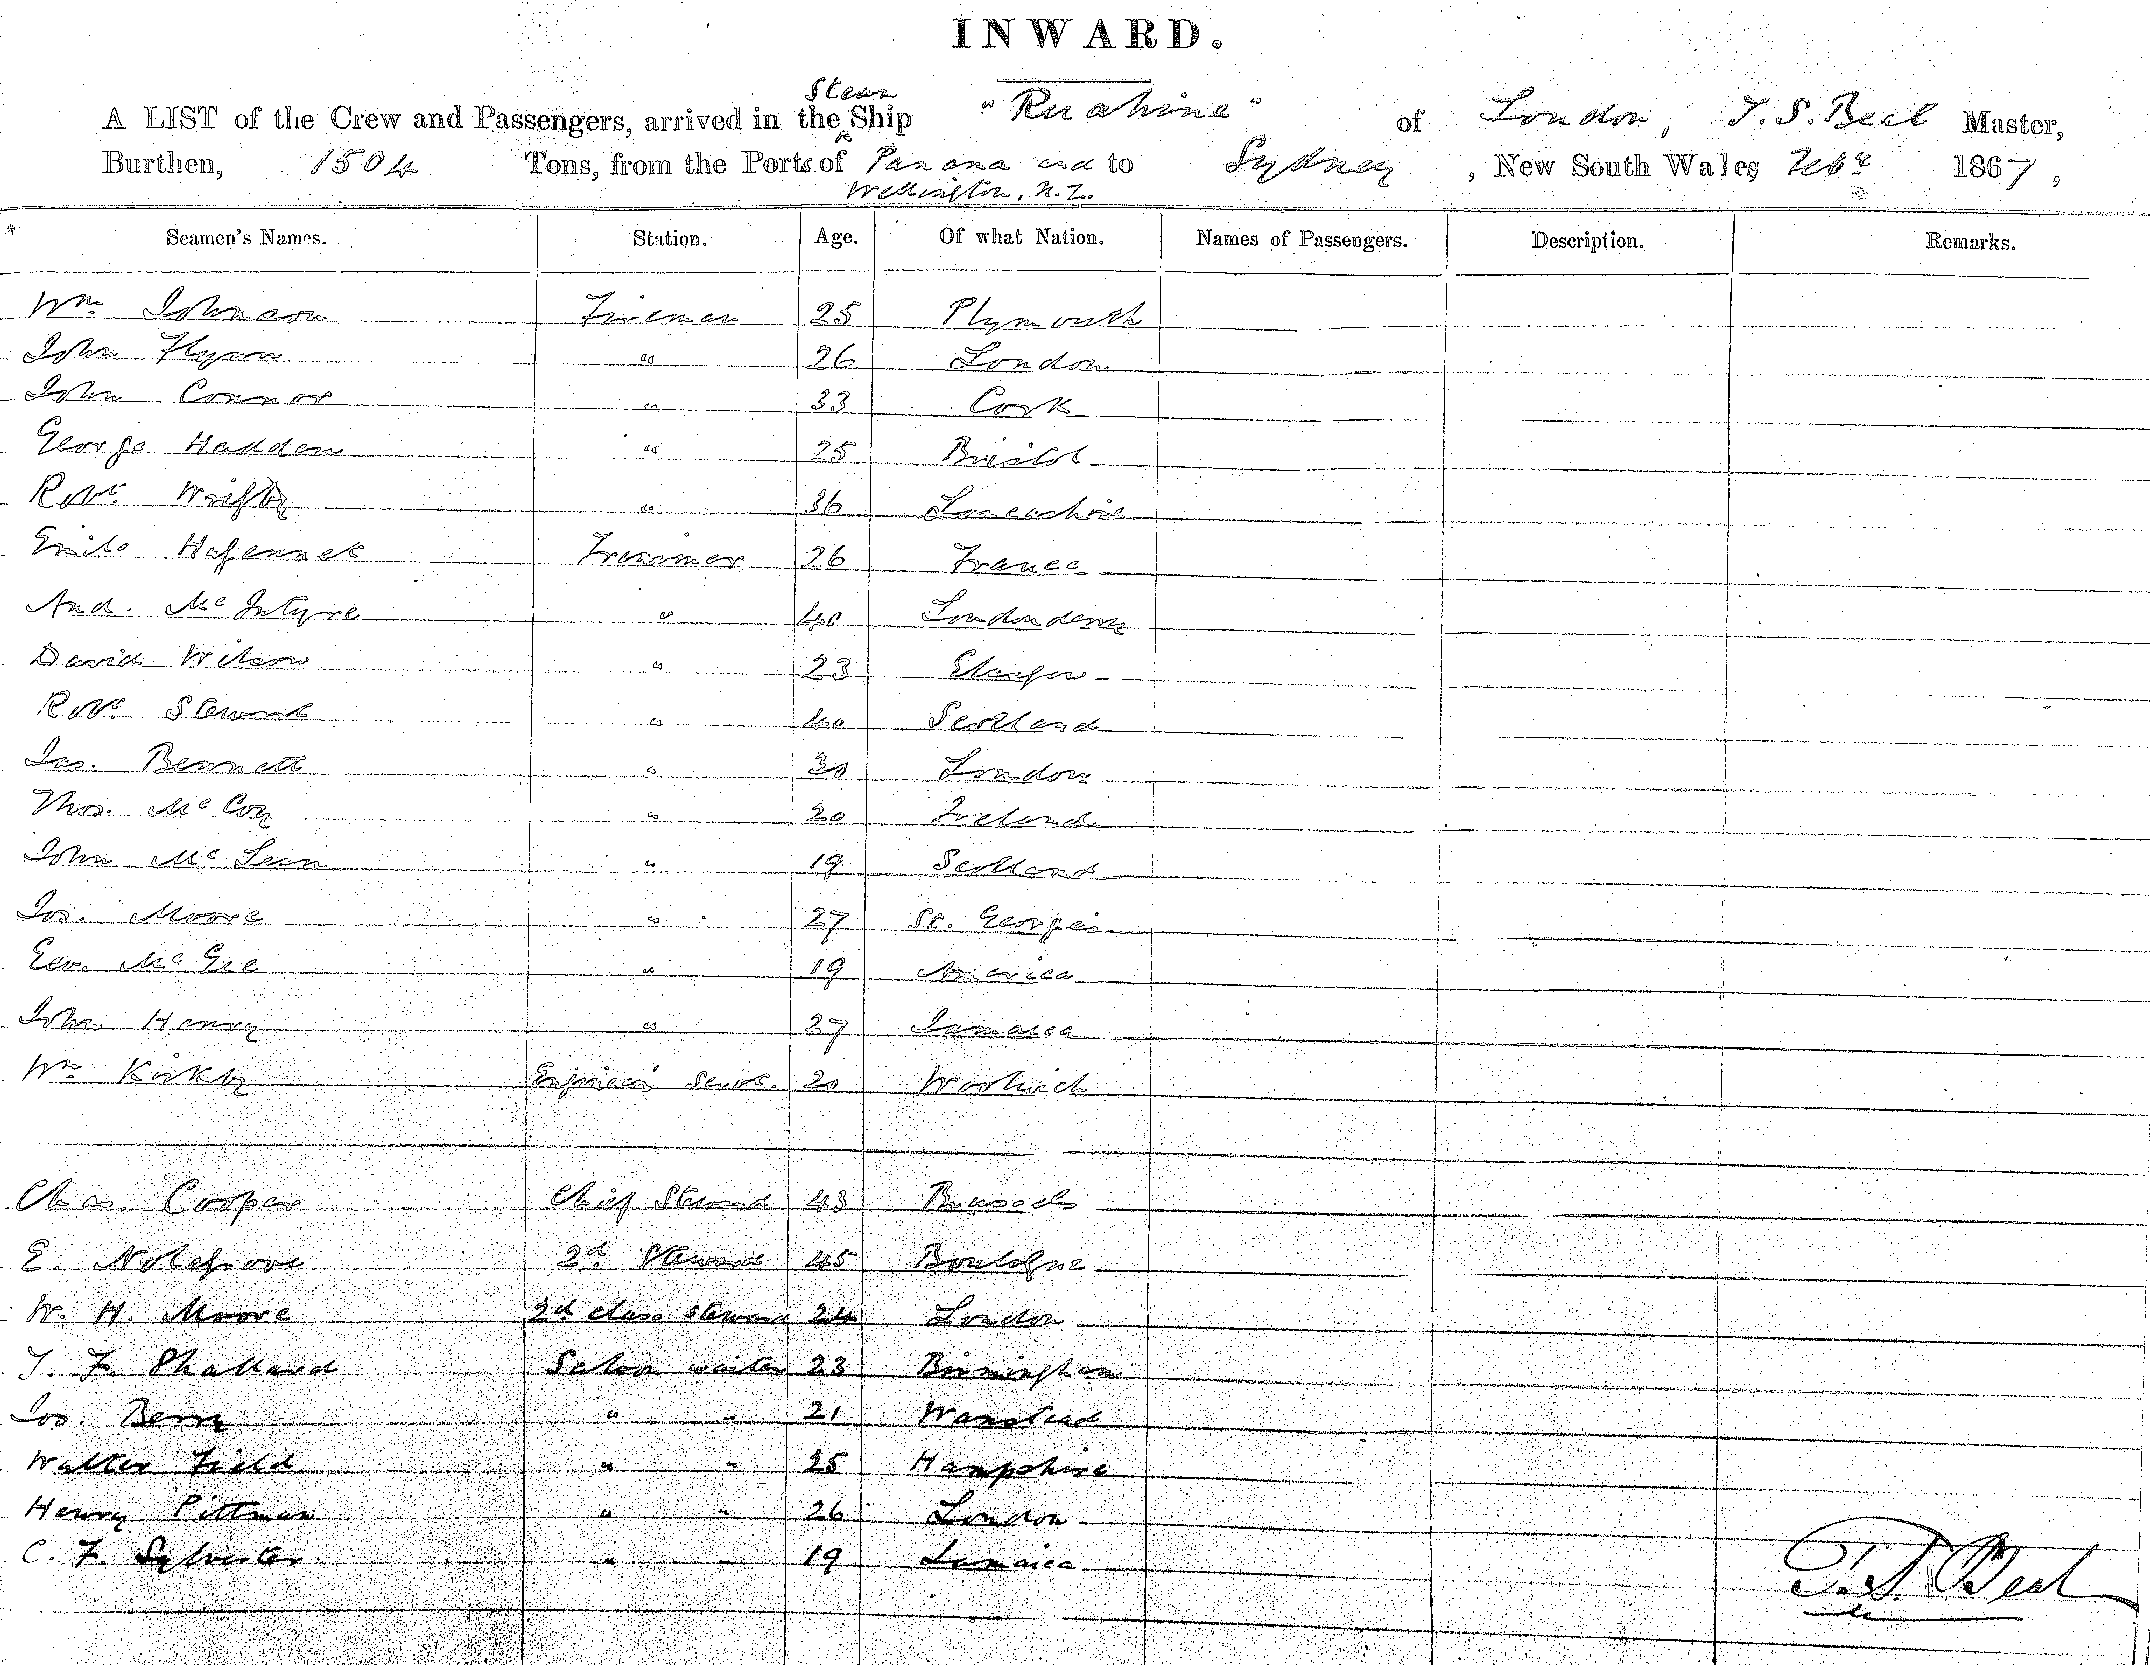 INWARD.
Steam
A LIST of the Crew and Passengers, arrived in the Ship "Ruahine" of London, T. S. Beal Master,
Burthen, 1504 Tons, from the Ports of Panama and to Sydney, New South Wales Feby 1867,
Wellington, N.Z.
Seamen's Names. Station. Age. Of what Nation. Names of Passengers. Description. Remarks.
Wm Johnson Fireman 25 Plymouth
John Flynn " 26 London
John Connor " 33 Cork
George Hadden " 25 Bristol
Robt Wrigley " 36 Lancashire
Emile Trimmer 26 France
And. McIntyre " 40 Londonderry
David Wilson " 23 Glasgow
Robt Stewart " 40 Scotland
Jas. Bennett " 30 London
Thos. McCoy " 20 Ireland
John McLean " 19 Scotland
Jos. Moore " 27 St. Georges
Geo. McGee " 19 America
John Henry " 27 Jamaica
Wm Kirkby Engineers' Servt. 20 Woolwich
Chas. Cooper Chief Steward 43 Brussels
E. Notegrove 2d. Steward 45 Boulogne
W. H. Moore 2d class steward 24 London
T. F. Shallard Saloon waiter 23 Birmingham
Jos. Berry " " 21 Wanstead
Walter Field " " 25 Hampshire
Henry Pittman " " 26 London
C. F. Sylvester " " 19 Jamaica
T. S. Beal